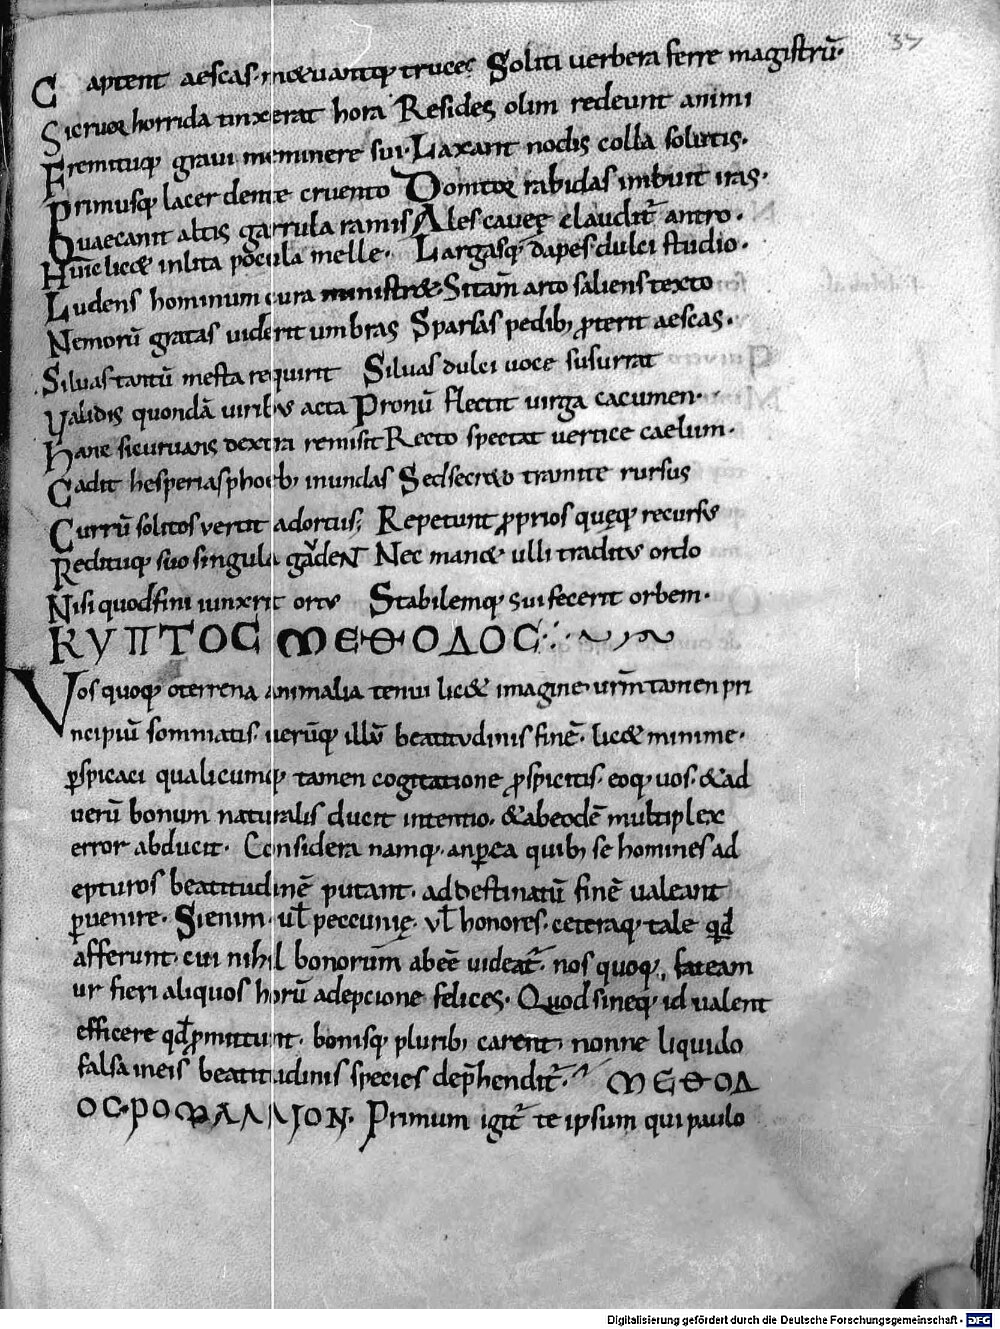 37
Captent aescas· metuantq; truces Soliti uerbera ferre magistrū·
Si cruor horrida tinxerat hora Resides olim redeunt animi
Fremituq; graui meminere sui· Laxant nodis colla solutis·
Primusq; lacer dente cruento Domitor rabidas imbuit iras·
Quae canit altis garrula ramis Ales caueę clauditr̄ antro·
Huic licet inlita pocula melle· Largasq; dapes dulci studio·
Ludens hominum cura ministret Si tam̄ arto saliens texto
Nemorū gratas uiderit umbras Sparsas pedib; proterit aescas·
Siluas tantū mesta requirit Siluas dulci uoce susurrat
Validis quondā uiribus acta Pronū flectit uirga cacumen·
Hanc si curuans dextra remisit Recto spectat uertice caelum·
Cadit hesperias phoeb; inundas Sed secreto tramite rursus
Currū solitos vertit adortus; Repetunt proprios quęq; recursus
Redituq; suo singula gaudeN Nec manet ulli traditus ordo
Nisi quod fini iunxerit ortus Stabilemq; sui fecerit orbem·
ΚΥΠΤΟC ΜΕΘΟΔΟC
Vos quoq; o terrena animalia tenui licet imagine urm̄ tamen pri
ncipiū somniatis· uerūq; illū beatitudinis finē· licet minime·
perspicaci qualicumq; tamen cogitatione prospicitis· eoq; uos· & ad
uerū bonum naturalis ducit intentio· & ab eodē multiplex
error abducit· Considera namq; an per ea quib; se homines ad
epturos beatitudinē putant· ad destinatū finē ualeant
peruenire· Si enim· ul̄ peccunię· vl̄ honores· ceteraq; tale qd̄
afferunt· cui nihil bonorum abeē uideatr̄· nos quoq; fateam
ur fieri aliquos horū adepcione felices· Quod si neq; id ualent
efficere qd̄ promittunt· bonisq; plurib; carent· nonne liquido
falsa in eis beatitudinis species deprehenditr̄· ΜΕΘΟΔ
ΟC·ΡΟΦΑΛΛΙΟΝ· Primum igitr̄ te ipsum qui paulo
Digitalisierung gefördert durch die Deutsche Forschungsgemeinschaft - DFG